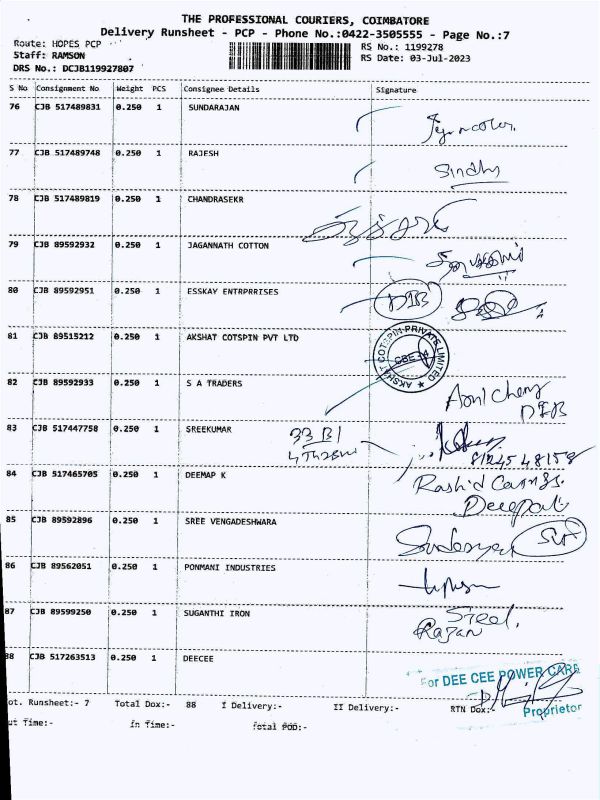 THE PROFESSIONAL COURIERS, COIMBATORE
Delivery Runsheet - PCP - Phone No.:0422-3505555 - Page No.:7
Route: HOPES PCP
RS No.: 1199278
Staff: RAMSON
RS Date: 03-Jul-2023
DRS No.: DCJB119927807
S No Consignment No Weight PCS Consignee Details Signature
76 CJB 517489831 0.250 1 SUNDARAJAN
77 CJB 517489748 0.250 1 RAJESH Sindhu
78 CJB 517489819 0.250 1 CHANDRASEKR
79 CJB 89592932 0.250 1 JAGANNATH COTTON
80 CJB 89592951 0.250 1 ESSKAY ENTRPRRISES DIB
81 CJB 89515212 0.250 1 AKSHAT COTSPIN PVT LTD
AKSHAT COTSPIN PRIVATE LIMITED ★
82 CJB 89592933 0.250 1 S A TRADERS
DIB
83 CJB 517447758 0.250 1 SREEKUMAR 33 B1
84 CJB 517465705 0.250 1 DEEMAP K Rashid
85 CJB 89592896 0.250 1 SREE VENGADESHWARA
86 CJB 89562051 0.250 1 PONMANI INDUSTRIES
87 CJB 89599250 0.250 1 SUGANTHI IRON Steel.
Rajan
88 CJB 517263513 0.250 1 DEECEE
For DEE CEE POWER CARE
Proprietor
ot. Runsheet:- 7 Total Dox:- 88 I Delivery:- II Delivery:- RTN Dox:-
ut Time:- In Time:- Total POD:-